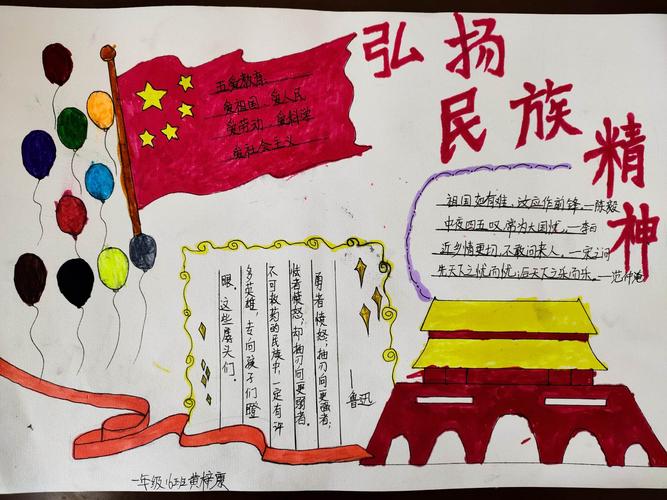 弘扬
民族
精神
五爱教育
爱祖国、爱人民
爱劳动、爱科学
爱社会主义
祖国如有难,汝应作前锋。—陈毅
中夜四五叹,常为大国忧。—李白
近乡情更切,不敢问来人。—宋之问
先天下之忧而忧,后天下之乐而乐。—范仲淹
勇者愤怒,抽刃向更强者;
怯者愤怒,却抽刃向更弱者。
不可救药的民族中,一定有许
多英雄,专向孩子们瞪
眼。这些孱头们。
——鲁迅
一年级16班黄梓康